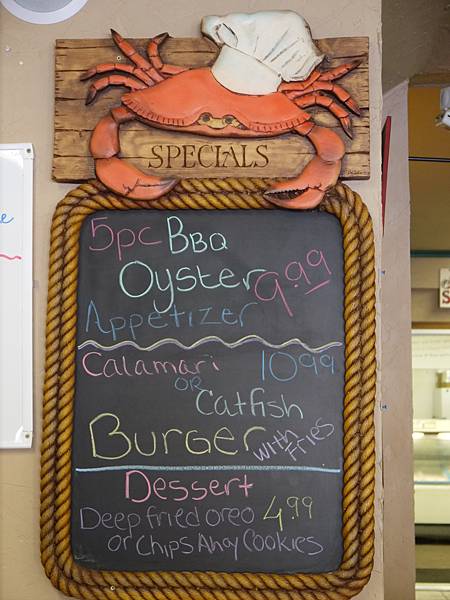 SPECIALS
5pc BBQ
Oyster 9.99
Appetizer
Calamari 1099
OR
Catfish
Burger with Fries
Dessert
Deep fried oreo 4.99
or Chips Ahoy Cookies